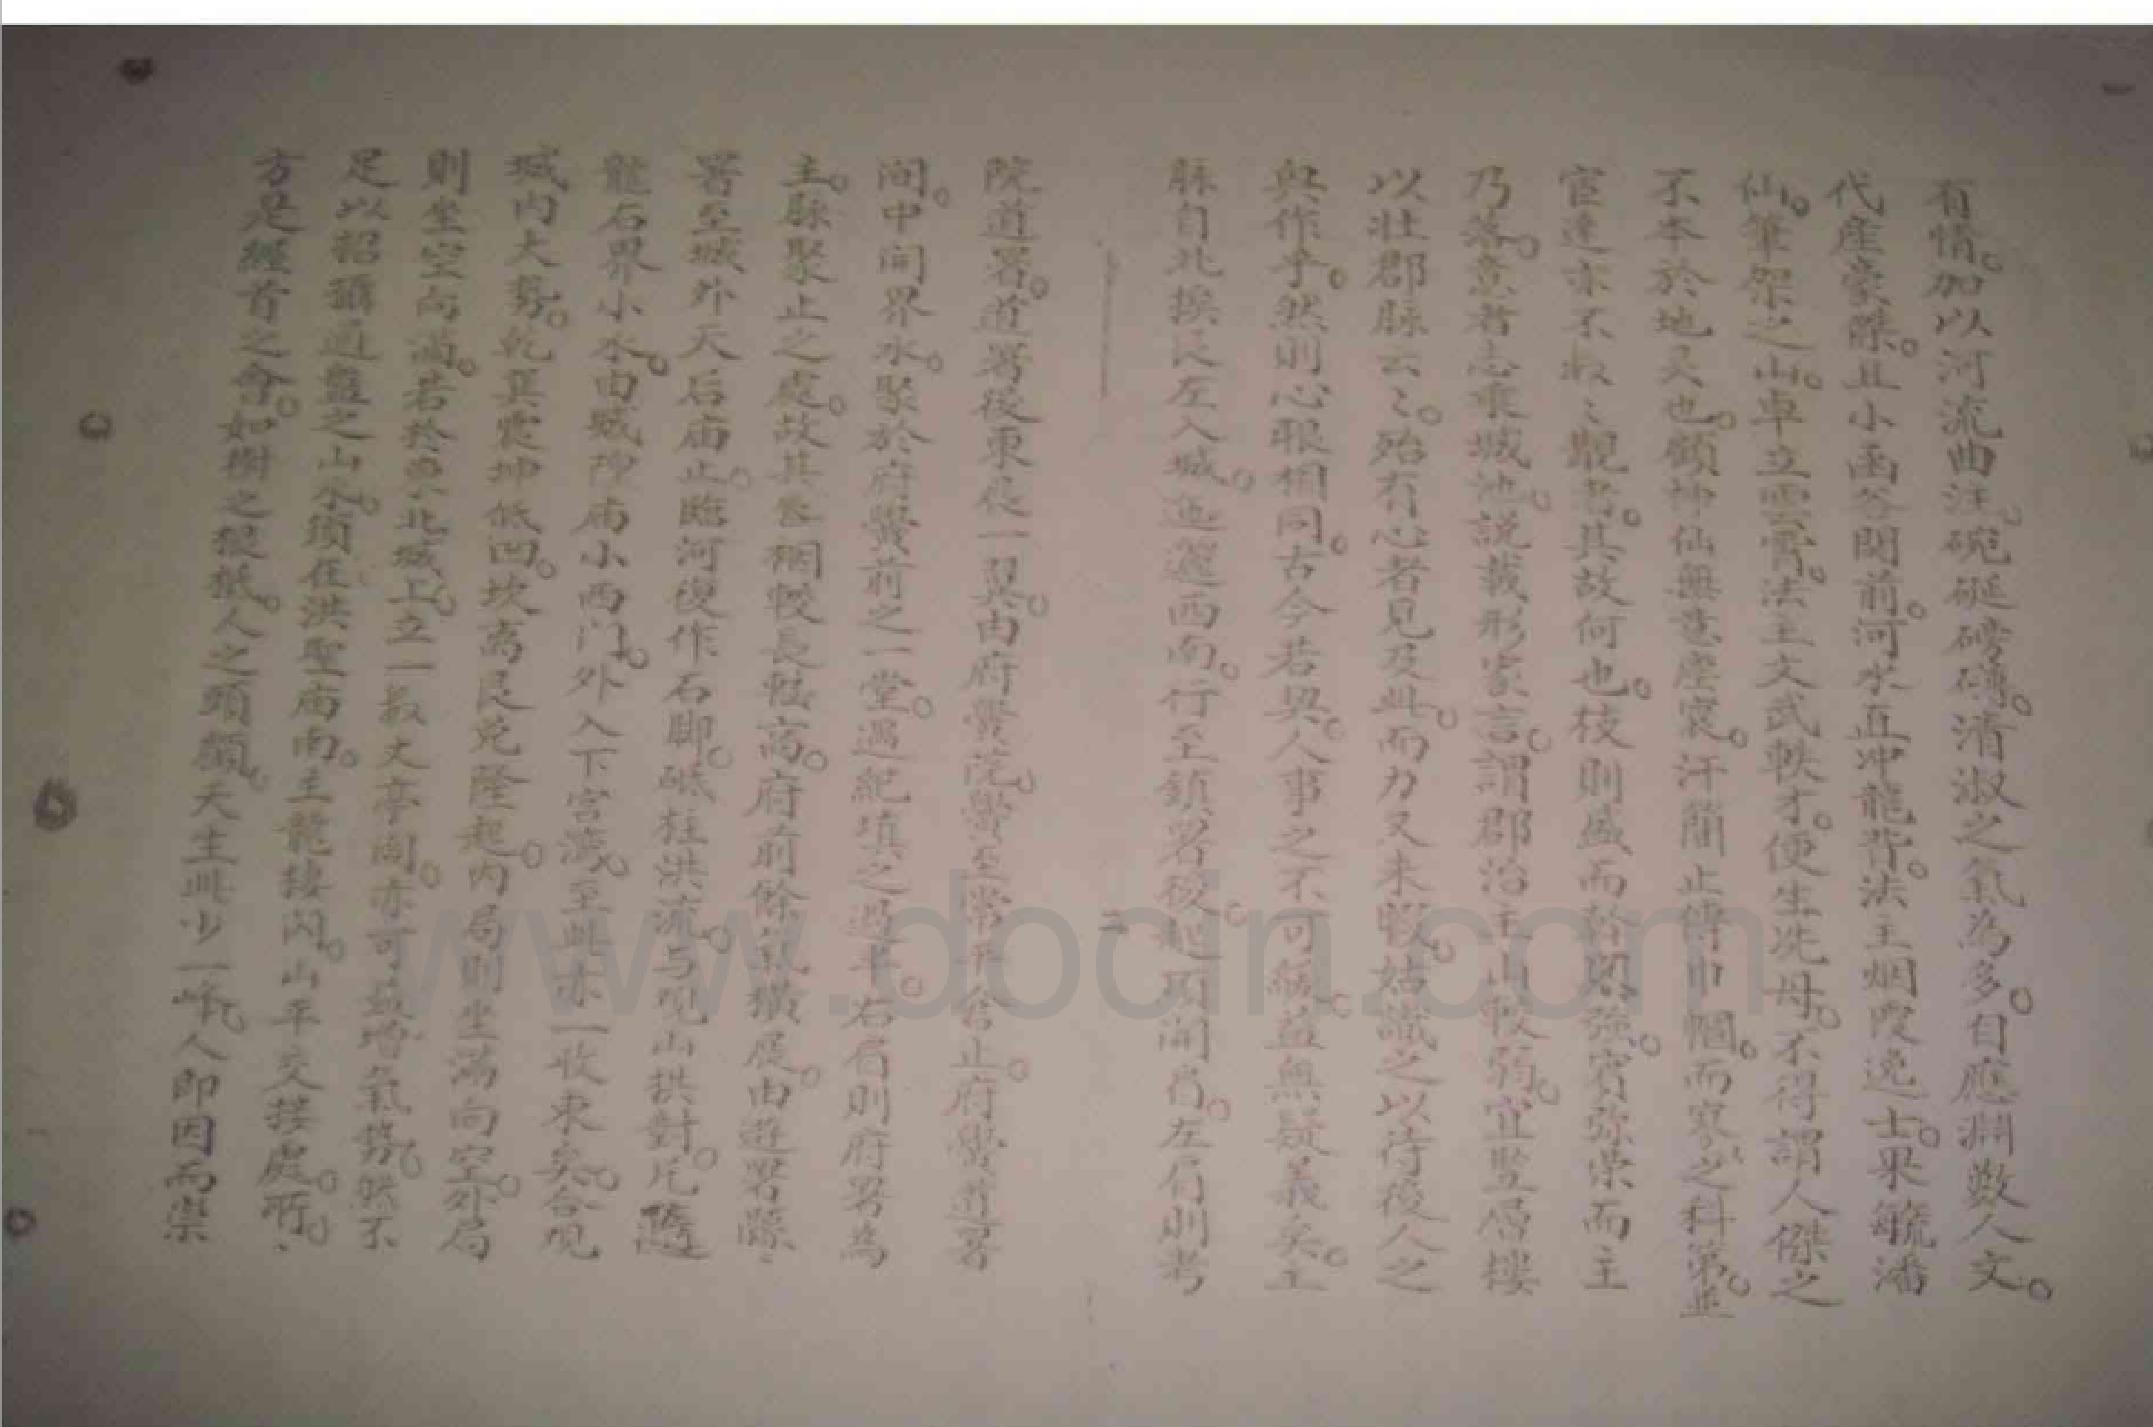 有情。加以河流曲注。碗碇磅礴。清淑之氣為多。自應澗数人文。
代産豪傑。且小函谷関前。河水直冲龍背。法主烟霞逸士。果毓潘
仙。筆架之山。卓立雲霄。法主文武軼才。便生冼母。不得謂人傑之
不本於地灵也。顧神仙無意塵寰。汗簡止傳巾幗。而寥々之科第。
宦達亦不数々覯者。其故何也。枝則盛而幹弱。強賓弥業而主
乃落。意者志乘城池。説載形家言。謂郡治主山較弱。宜竪層樓
以壮郡脉云々。殆有心者見及此。而力又未暇。姑識之以待後人之
與作乎。然則心眼相同。古今若與。人事之不可缺。益無疑義矣。主
脉自北挨艮左入城。迤邐西南。行至鎮署後。起頂開肩。左肩則考
二
院道署。道署後東長一翼。由府學院。學至常平倉止。府學道署
間。中間界水。聚於府學前之一堂。遇紀填之過半。右肩則府署為
主。脉聚止之處。故其 較長較高。府前餘氣横展。由遊署 、
署至城外天后庙止。臨河復作石脚。砥柱洪流。与 山拱對。凡隨
龍石界小水。由城隍庙小西门。外入下宫湾。至此亦一收束矣。合
城内大勢。乾巽震坤低凹。坎离艮兑隆起。内局則坐滿向空。外局
則坐空向滿。若於東北城上。立一数丈亭阁。亦可益增氣势。然不
足以招攝通盤之山水。須在洪聖庙南。主龍接閃。山平交接處。所、
方是經首之會。如樹之根抵。人之頭顱。天生此少一峰。人即因而崇
www.docin.com